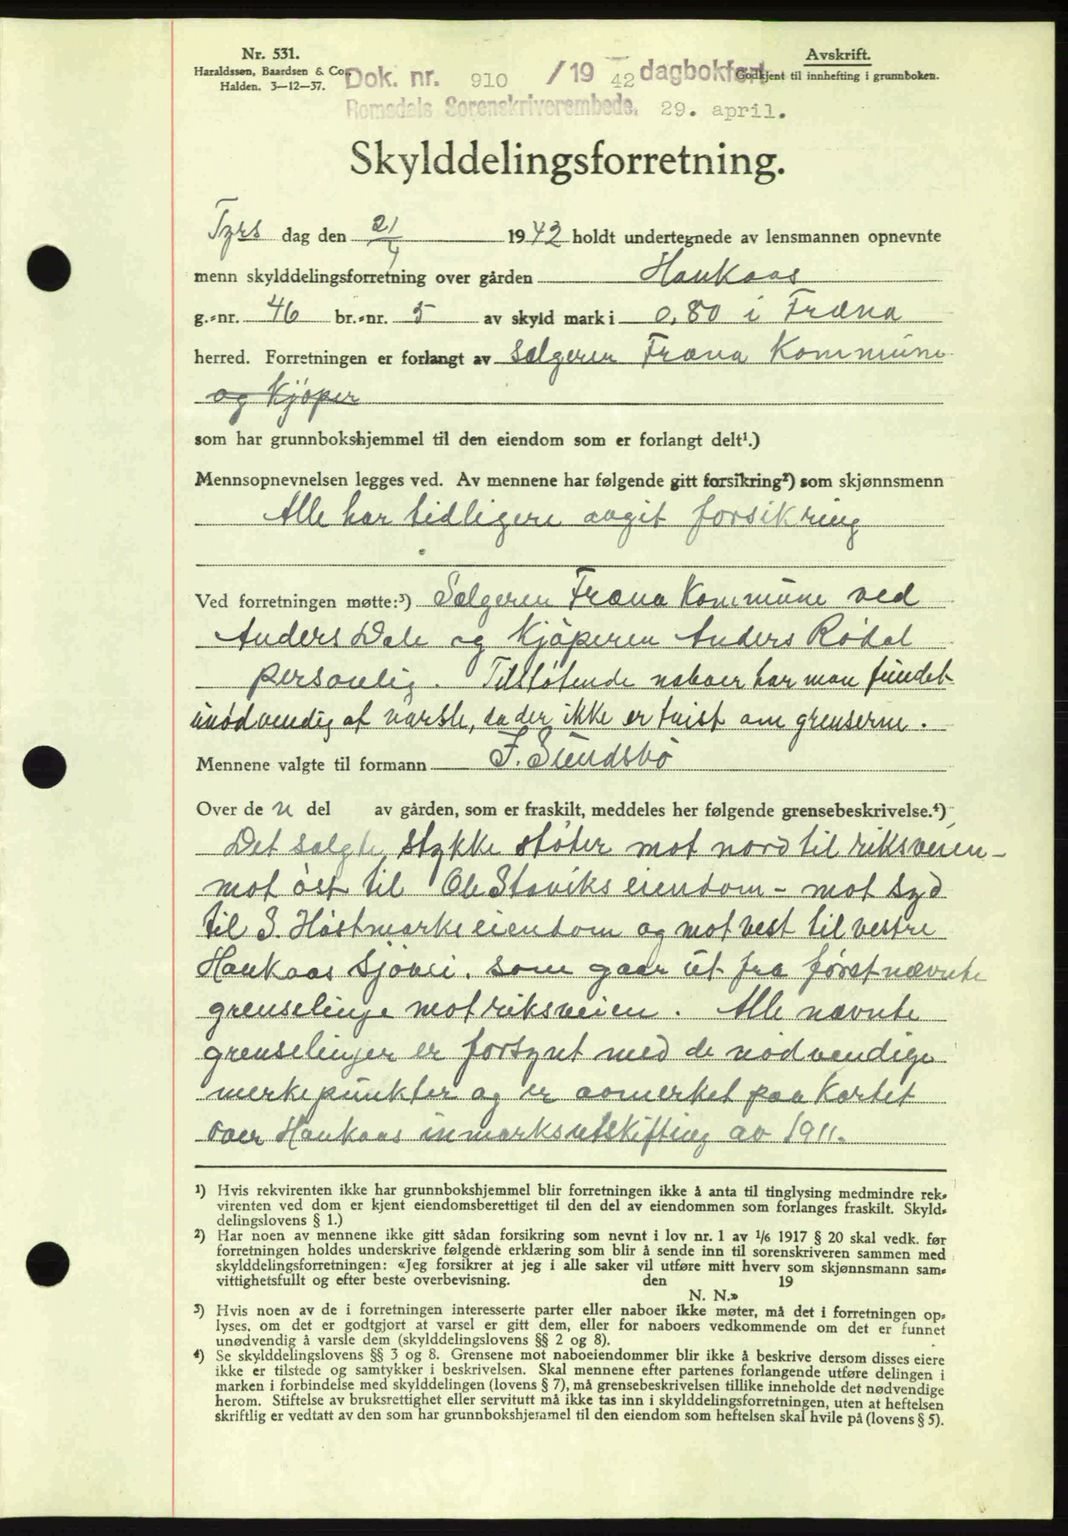 Nr. 531.
Haraldssen, Baardsen & Co.,
Halden. 3—12—37.
Dok. nr. 910 /19 42 dagbokført
Romsdals Sorenskriverembede. 29. april.
Avskrift.
Godkjent til innhefting i grunnboken.
Skylddelingsforretning.
Tyrs dag den 21/4 1942 holdt undertegnede av lensmannen opnevnte
menn skylddelingsforretning over gården Haukaas
g.-nr. 46 br.-nr. 5 av skyld mark i 0,80 i Fræna
herred. Forretningen er forlangt av Sælgeren Fræna Kommune
og Kjöper
som har grunnbokshjemmel til den eiendom som er forlangt delt¹.)
Mennsopnevnelsen legges ved. Av mennene har følgende gitt forsikring²) som skjønnsmenn
Alle har tidligere avgit forsikring
Ved forretningen møtte:³) Sælgeren Fræna Kommune ved
Anders Dale og Kjöperen Anders Rødal
personlig. Tilstøtende naboer har man fundet
unødvendig at varsle, da der ikke er tvist om grenserne.
Mennene valgte til formann F. Sundsbö
Over de n del av gården, som er fraskilt, meddeles her følgende grensebeskrivelse.⁴)
Det solgte stykke støter mot nord til riksveien -
mot öst til Ole Staviks eiendom - mot syd
til S. Hastmarks eiendom og mot vest til vestre
Haukaas Sjövei. som gaar ut fra førstnævnte
grenselinje mot riksveien. Alle nævnte
grenselinjer er forsynt med de nødvendige
merkepunkter og er avmerket paa Kartet
over Haukaas inmarksutskifting av 1911.
¹) Hvis rekvirenten ikke har grunnbokshjemmel blir forretningen ikke å anta til tinglysing medmindre rek-
virenten ved dom er kjent eiendomsberettiget til den del av eiendommen som forlanges fraskilt. Skyld-
delingslovens § 1.)
²) Har noen av mennene ikke gitt sådan forsikring som nevnt i lov nr. 1 av 1/6 1917 § 20 skal vedk. før
forretningen holdes underskrive følgende erklæring som blir å sende inn til sorenskriveren sammen med
skylddelingsforretningen: «Jeg forsikrer at jeg i alle saker vil utføre mitt hverv som skjønnsmann sam-
vittighetsfullt og efter beste overbevisning. den 19
N. N.»
³) Hvis noen av de i forretningen interesserte parter eller naboer ikke møter, må det i forretningen op-
lyses, om det er godtgjort at varsel er gitt dem, eller for naboers vedkommende om det er funnet
unødvendig å varsle dem (skylddelingslovens §§ 2 og 8).
⁴) Se skylddelingslovens §§ 3 og 8. Grensene mot naboeiendommer blir ikke å beskrive dersom disses eiere
ikke er tilstede og samtykker i beskrivelsen. Skal mennene efter partenes forlangende utføre delingen i
marken i forbindelse med skylddelingen (lovens § 7), må grensebeskrivelsen tillike inneholde det nødvendige
herom. Stiftelse av bruksrettighet eller servitutt må ikke tas inn i skylddelingsforretningen, uten at heftelsen
skriftlig er vedtatt av den som har grunnbokshjemmel til den eiendom som heftelsen skal hvile på (lovens § 5).